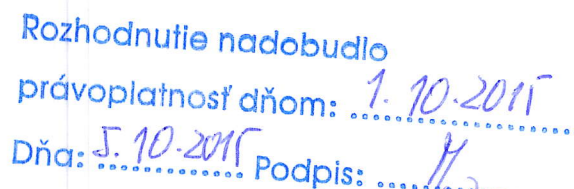 Rozhodnutie nadobudlo
právoplatnosť dňom: 1. 10. 2015
Dňa: 5. 10. 2015 Podpis: